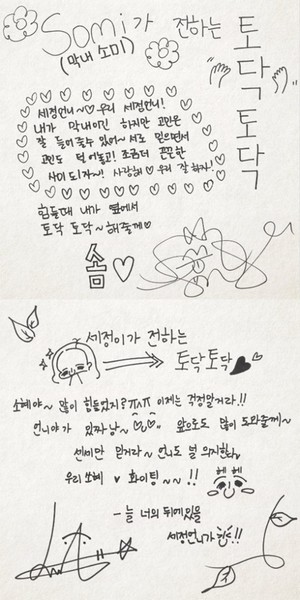 Somi가 전하는
(막내 소미)
토닥토닥
세정언니~♡ 우리 세정언니!
내가 막내이긴 하지만 고민은
잘 들어줄수 있어~ 서로 믿으면서
고민도 덜어놓고! 조금더 끈끈한
사이 되자~! 사랑해♡ 우리 잘 하자!
힘들때 내가 옆에서
토닥 토닥~ 해줄께♡
쏨♡
세정이가 전하는
토닥토닥
소혜야~ 많이 힘들었지? ㅠㅅㅠ 이제는 걱정말거라!!
언니야가 있짜낭~ 앞으로도 많이 도와줄께~
센터만 믿거라~ 언니도 널 의지할
우리 쏘혜 ♥ 화이팅~~!!
헤헤
- 늘 너의 뒤에 있을
세정언니가